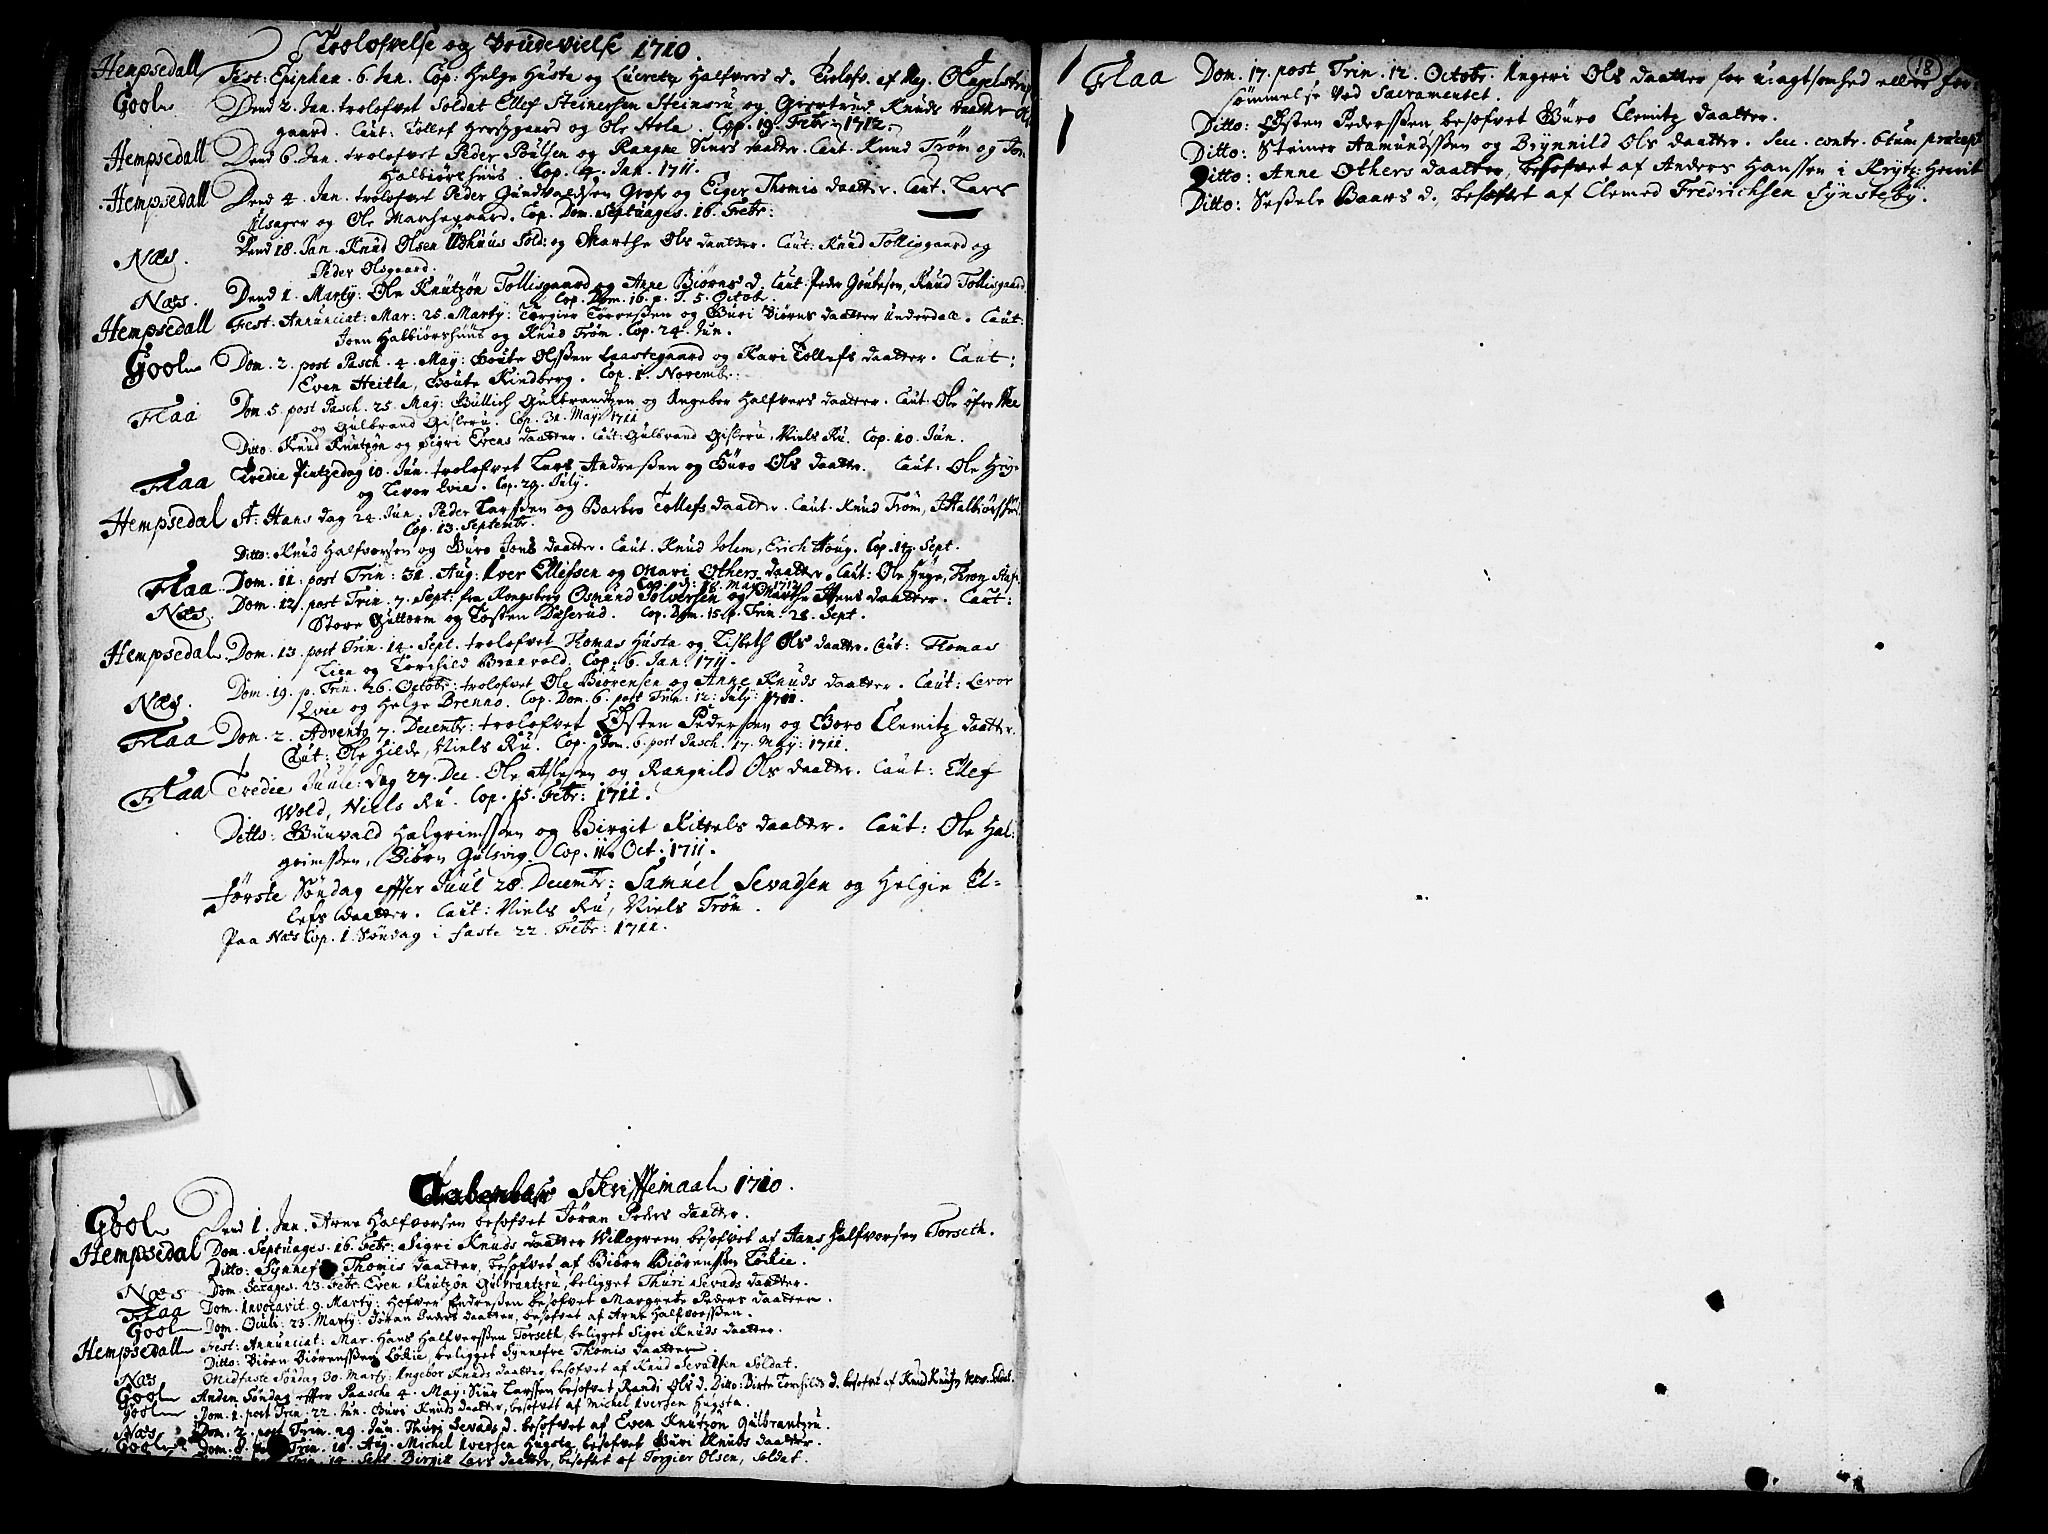 Trolofvelse og Brudevielse 1710.
Hempsedall Fest: Epiphan. 6. Jan. Cop: Helge Husta og Lucretz Halfvers d. Trolofv. af
Gool Dend 2. Jan. trolofvet Soldat Ellef Steinersen Steinsru og Giertrud Knuds daatter
gaard. Caut: Tollef og Ole Hola. Cop. 19. Febr: 1712.
Hempsedall Dend 6. Jan. trolofvet Peder Poulsen og Rangne Siurs daatter. Caut. Knud Trøm og Jon
Halbiørshuus. Cop. 4. Jan. 1711.
Hempsedall Dend 4. Jan. trolofvet Peder Gundvaldsen Grøf og Eiger Thomis daatter. Caut. Lars
Ulsager og Ole Marchegaard. Cop. Dom. Septuages. 16. Febr:
Næs. Dend 18. Jan. Knud Olsen Sold: og Marthe Ols daatter. Caut: Knud Tollisgaard og
Peder Olsgaard.
Næs. Dend 1. Marty: Ole Knutzøn Tollisgaard og Anne Biørns d. Caut: Peder Goutesen, Knud Tollisgaard
Cop. Dom. 16. p. T. 5. Octobr.
Hempsedall Fest: Annunciat: Mar: 25. Marty: Torgier Torressen og Guri Biørns daatter Underdall. Caut:
Joen Halbiørshuus og Knud Trøm. Cop. 24. Jun.
Gool Dom. 2. post Pasch. 4. May: Goute Olssen Laastegaard og Kari Tollefs daatter. Caut:
Even Heitla, Goute Rindberg. Cop. 1. Novembr:
Flaa Dom. 5. post Pasch. 25. May: Gullich Gulbrandtzen og Angeber Halfvers daatter. Caut: Ole øfre
og Gulbrand Gisleru. Cop. 31. May 1711
Ditto. Knud Knutzøn og Sigri Evens daatter. Caut: Gulbrand Gisleru, Niels Ru. Cop. 10. Jun.
Flaa Tredie Pintzedag 10. Jun. trolofvet Lars Andressen og Guro Ols daatter. Caut: Ole
og Levor Lvie. Cop. 29. July.
Hempsedal St: Hans dag 24. Jun. Peder Larssen og Barbro Tollefs daatter. Caut. Knud Trøm,
Cop. 13. Septembr.
Ditto: Knud Halfvorsen og Guro Jons daatter. Caut. Knud Jolem, Erich Houg. Cop. 14. Sept.
Flaa Dom. 11. post Trin: 31. Aug: Iver Ellefsen og Mari Others daatter. Caut: Ole
Cop. d: 18. May. 1712
Næs. Dom. 12. post Trin. 7. Sept: fra Kongsberg Osmund Solversen og Marthe Hans daatter. Caut:
Store Guttorm og Tosten Diiserud. Cop. Dom. 15. p. Trin. 28. Sept.
Hempsedal Dom. 13. post Trin. 14. Sept. trolofvet Thomas Husta og Lisbeth Ols daatter. Caut: Thomas
Lien og Torchild Braavold. Cop. 6. Jan. 1711.
Næs. Dom. 19. p. Trin. 26. Octobr: trolofvet Ole Biørensen og Anne Knuds daatter. Caut: Levor
Lvie og Helge Brenno. Cop. Dom. 6. post Trin: 12. July: 1711.
Flaa Dom. 2. Advents 7. Decembr: trolofvet Østen Pederssen og Goro Clemitz daatter.
Caut: Ole Hilde, Niels Ru. Cop. Dom. 6. post Pasch. 17. May: 1711.
Flaa Tredie Juule dag 27. Dec. Ole Aslessen og Rangnild Ols daatter. Caut: Ellef
Wold, Niels Ru. Cop. 15. Febr: 1711.
Ditto: Gunvald Halgrimssen og Birgit Kittels daatter. Caut: Ole Hal:
grimssen, Biörn Gulsvig. Cop. 11. Oct. 1711.
Første Søndag effter Juul 28. Decembr: Samuel Sevadsen og Helgie El=
lefs daatter. Caut: Niels Ru, Niels Trøm.
Paa Næs Cop. 1. Søndag i faste 22. Febr: 1711.
Aabenbar Skrifftemaal 1710.
Gool Dend 1. Jan. Arne Halfvorsen besofvet Jøran Peders daatter.
Hempsedal Dom. Septuages. 16. Febr: Sigri Knuds daatter Villogreen besofvet af Hans Halfvorsen Torseth.
Ditto: Synnef Thomis daatter, besofvet af Biørn Biørenssen Lökie.
Næs Dom. Sexages. 23. Febr. Even Knutzøn Gulbrantzru, beligget Thuri Sevads daatter.
Flaa Dom. Invocavit 9. Marty: Hofver Endressen besofvet Margrete Peders daatter.
Gool Dom. Oculi: 23. Marty: Jøran Peders daatter, besofvet af Arne Halfvorssen.
Hempsedall Fest: Annunciat: Mar. Hans Halfverssen Torseth, beligget Sigri Knuds daatter.
Ditto: Biørn Biørenssen Lökie, beligget Synnefve Thomis daatter.
Næs Midfaste Søndag 30. Marty: Angebor Knuds daatter, besofvet af Knud Sevaldsen Soldat.
Gool Anden Søndag effter Paasche 4. May: Siur Larssen besofvet, Randi Ols d. Ditto: Birte Torchilds d. besofvet af Knud
Gool Dom. 1. post Trin. 22. Jun. Guri Knuds daatter, besofvet af Michel Iversen Hugsta.
Næs Dom. 2. post Trin. 29. Jun. Thuri Sevads d. besofvet af Even Knutzøn Gulbrantzru.
Gool Dom. 8. post Trin. 10. Aug. Michel Iversen Hugsta, besofvet Guri Knuds daatter.
Trin. 14. Sept. Birgitt Lars daatter, besofvet af Torgier Olsen, Soldat.
18
Flaa Dom. 17. post Trin. 12. Octobr. Angeri Ols daatter for uagtsomhed eller for=
sømmelse ved Sacramentet.
Ditto: Østen Pederssen besofvet Guro Clemitz daatter.
Ditto: Steiner Aamundssen og Brynnild Ols daatter. Sec. contr. 6tum præcept
Ditto: Anne Others daatter, besofvet af Anders Hanssen i
Ditto: Sessele Baars d. besofvet af Clemed Fredrichsen Synsteby.